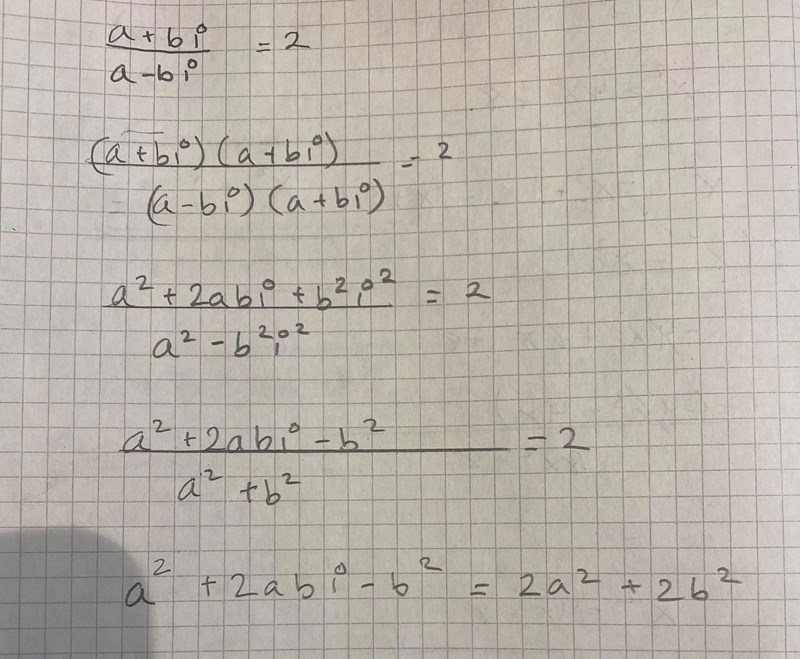 a + bi
a - bi
= 2
(a + bi) (a + bi)
(a - bi) (a + bi)
= 2
a² + 2abi + b²i²
a² - b²i²
= 2
a² + 2abi - b²
a² + b²
= 2
a² + 2abi - b² = 2a² + 2b²